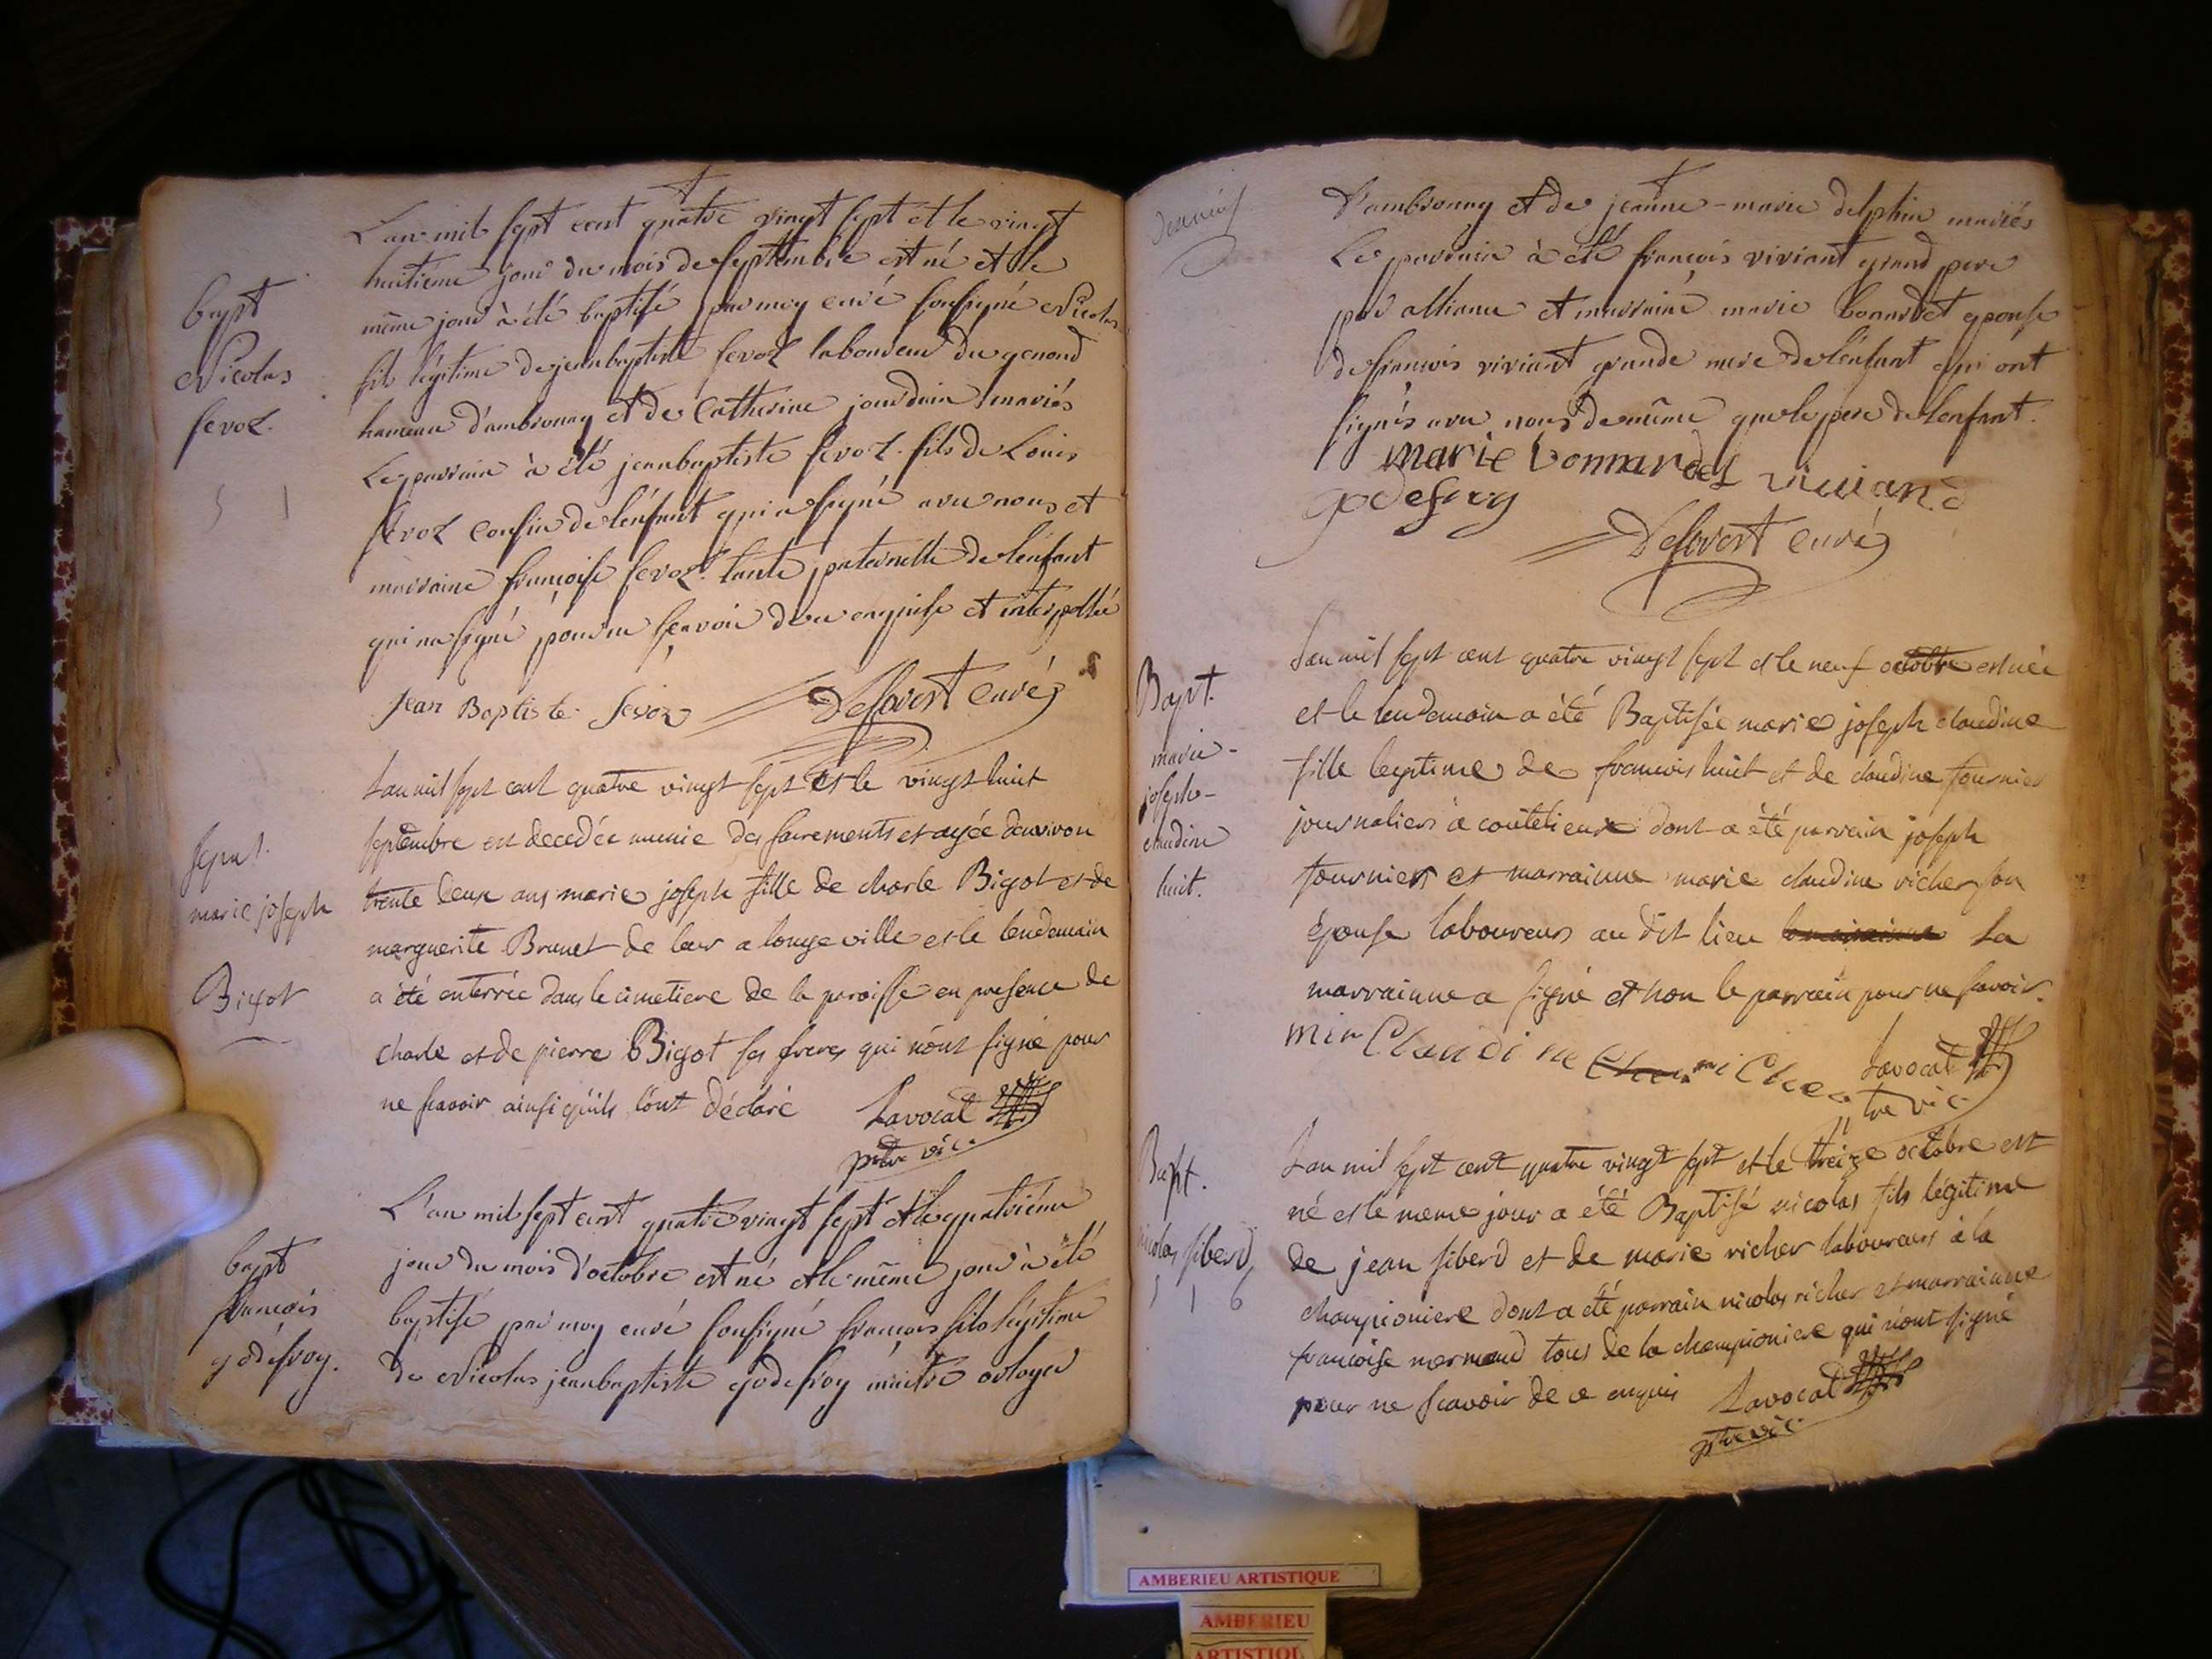 L'an mil sept cent quatre vingt sept et le vingt
huitieme jour du mois de septembre est né et le
même jour à été baptisé par moy curé soussigné Nicolas
fils légitime de jeanbaptiste sevoz laboureur du genoud
hameau d'ambronay et de Catherine jourdain mariés
Le parrain à été jeanbaptiste sevoz fils de Louis
sevoz cousin de lénfant qui a signé avec nous et
marraine françoise sevoz tante paternelle de lénfant
qui na signé pour ne sçavoir de ce enquise et interpellée
bapt
Nicolas
sevoz.
5 1
Jean Baptiste sévoz Delavest curé
Lan mil sept cent quatre vingt sept et le vingt huit
septembre est decedée munie des sacrements et agée denviron
trente deux ans marie joseph fille de charle Bigot et de
marguerite Brunet de leur a longeville et le lendemain
a été enterrée dans le cimetiere de la paroisse en presence de
charle et de pierre Bigot ses freres qui n'ont signé pour
ne scavoir ainsi qu'ils l'ont déclaré Lavocat
ptre vic.
sepul.
marie joseph
Bigot
L'an mil sept cent quatre vingt sept et le quatriéme
jour du mois d'octobre est né et le même jour à été
baptisé par moy curé soussigné françois fils légitime
de Nicolas jeanbaptiste godefroy maitre orloger
bapt
francois
godefroy.
d'ambronay et de jeanne-marie delphin mariés
Le parrain à été françois viviant grand pere
par alliance et marraine marie bonardet epouse
de francois viviant grande mere de lénfant qui ont
signés avec nous de même que le pere de lenfant.
marie bonnardel vivian d
godefroy
Delavest curé
Lan mil sept cent quatre vingt sept et le neuf octobre est née
et le lendemain a été Baptisée marie joseph claudine
fille legitime de francois huit et de claudine fournier
journaliers a coutelieux dont a été parrain joseph
fournier et marrainne marie claudine richer son
épouse laboureurs au dit lieu La
marrainne a signé et non le parrain pour ne savoir.
Bapt.
marie-
joseph-
claudine
huit.
Claudine
Lavocat
ptre vic.
Lan mil sept cent quatre vingt sept et le treize octobre est
né et le meme jour a été Baptisé nicolas fils légitime
de jean siberd et de marie richer laboureurs à la
championiere dont a été parrain nicolas richer et marrainne
francoise mermand tous de la championiere qui n'ont signé
pour ne scavoir de ce enquis Lavocat
ptre vic.
Bapt.
nicolas siberd
5 1 6
AMBERIEU ARTISTIQUE
AMBERIEU
ARTISTIQU